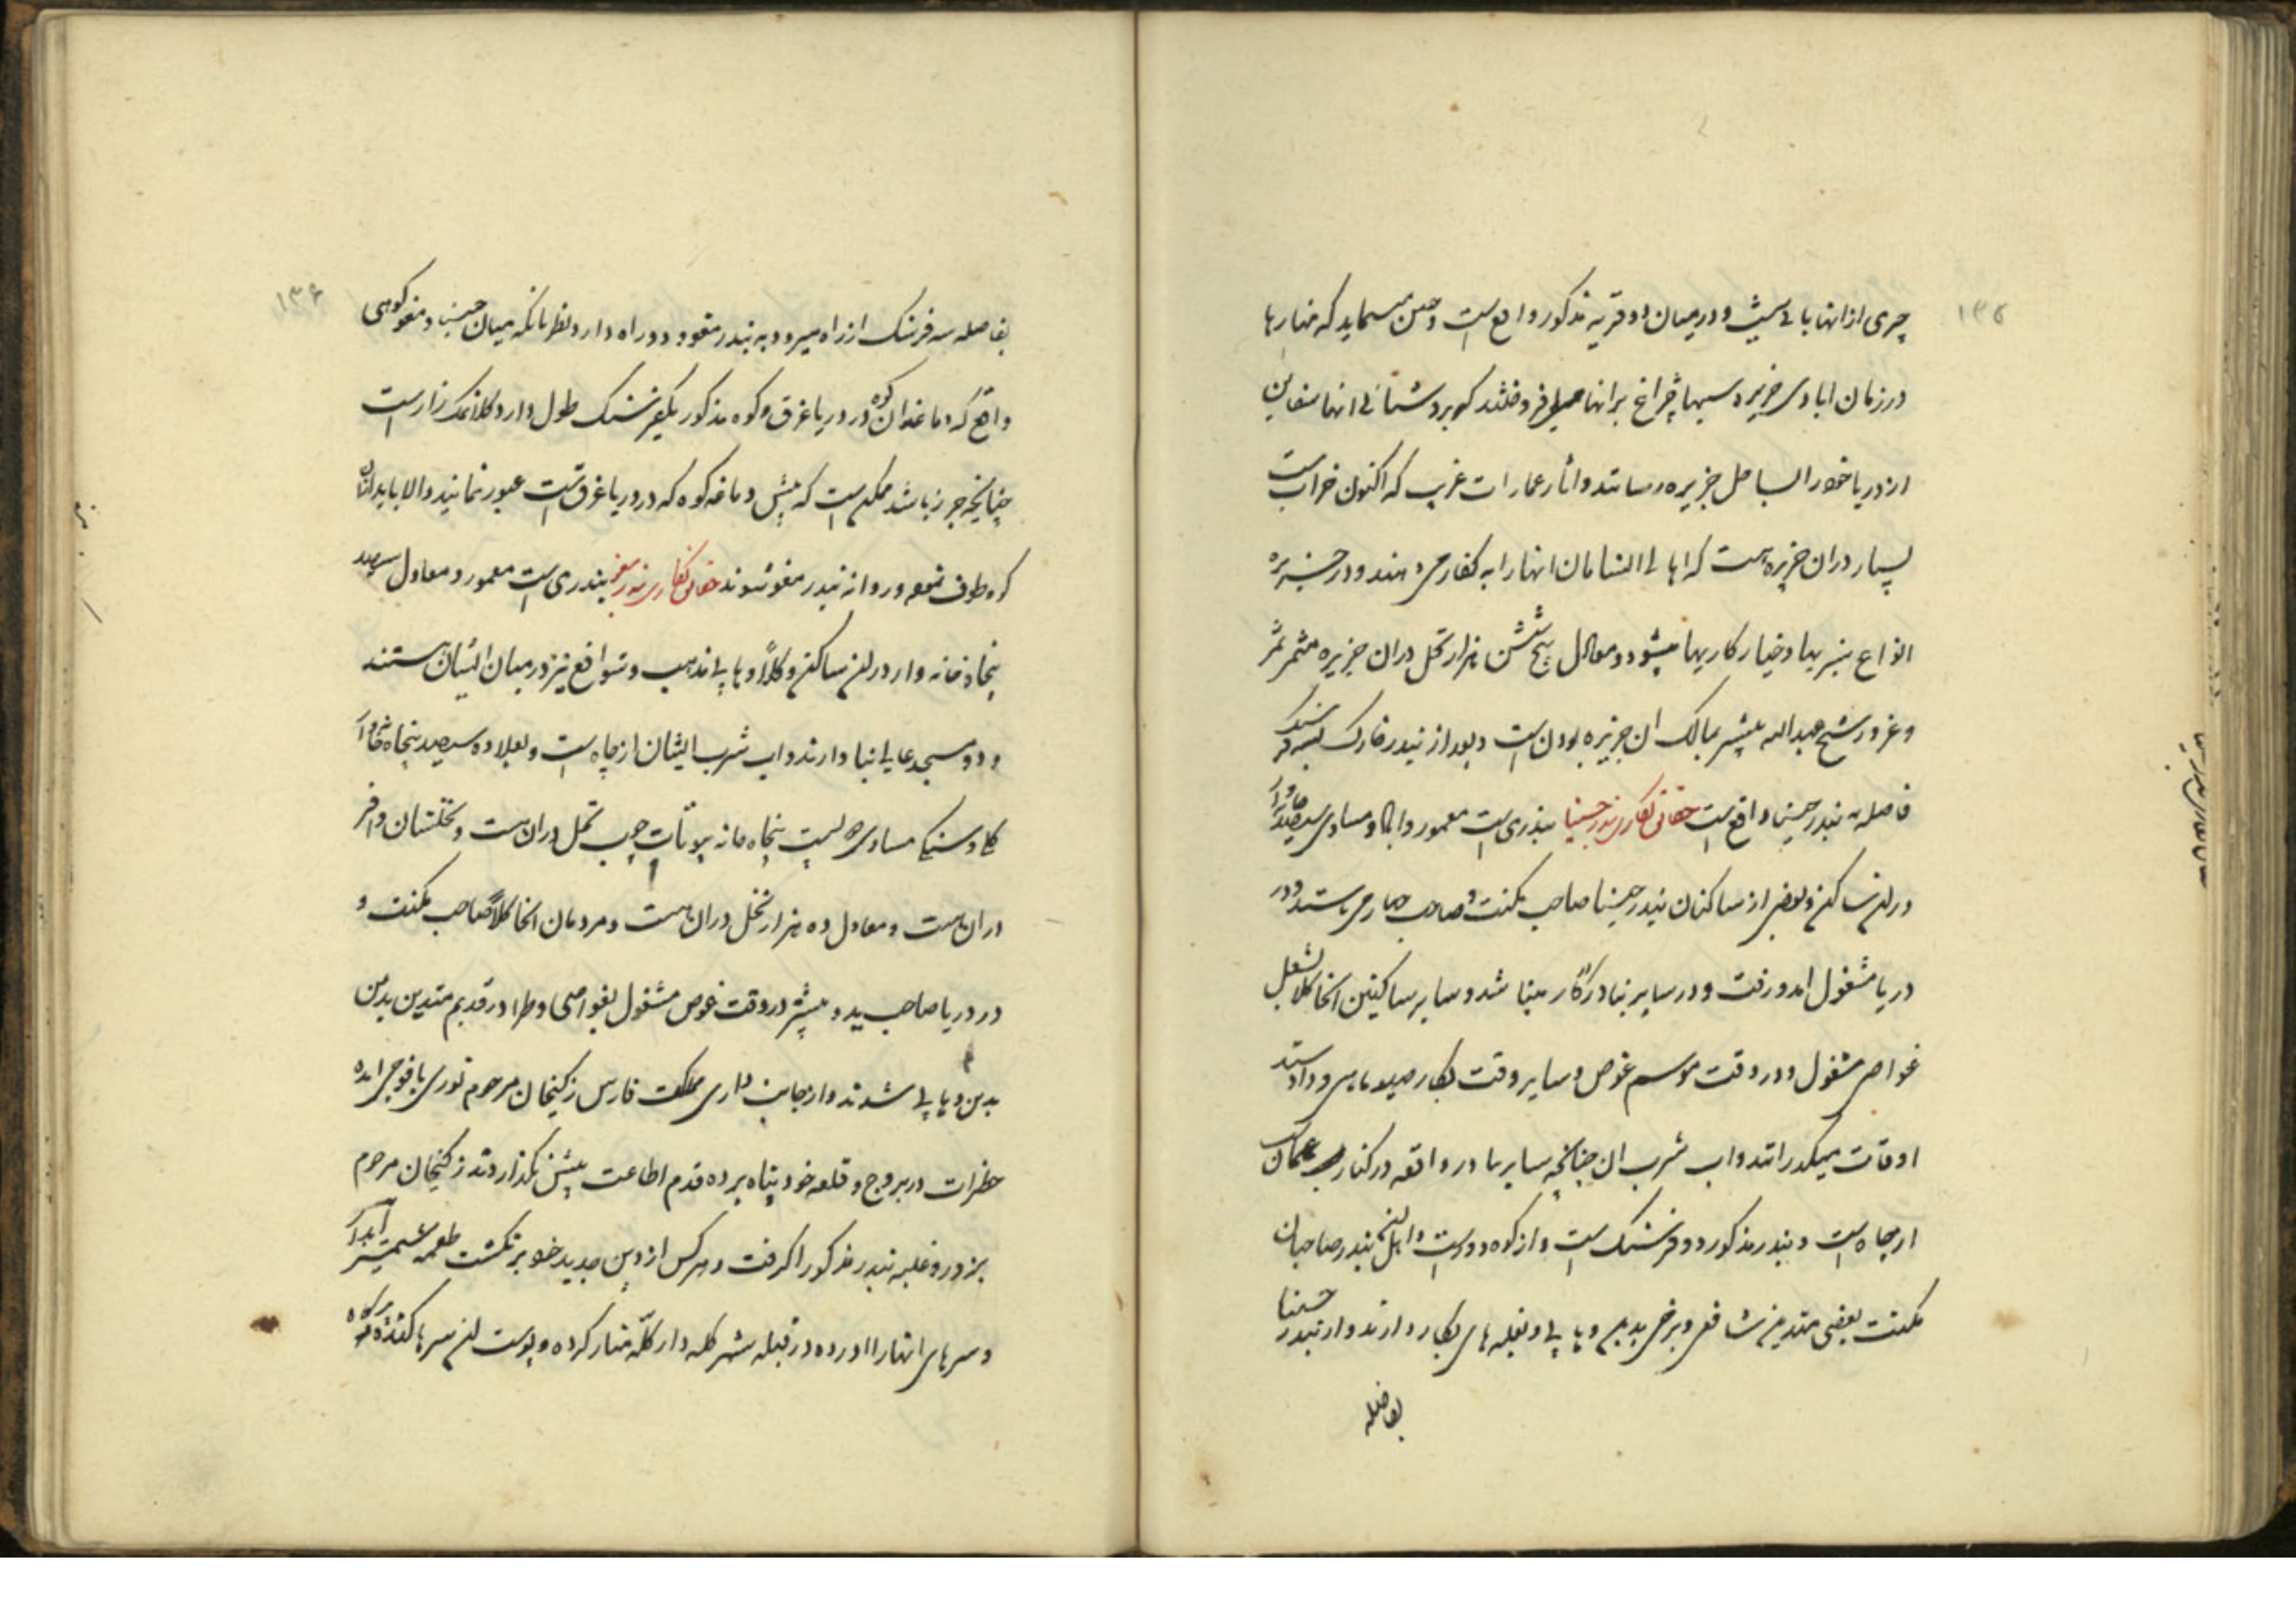 ۱۳۵
چیری از انها باقی نیست و در میان دو قریه مذکور واقع است و چنین مینماید که منارها
در زمان ابادی جزیره شبها چراغ بر انها میافروختند که بروشنائی انها سفاین
از دریا خود را بساحل جزیره رسانند و اثار عمارات غریب که اکنون خراب است
بسیار دران جزیره هست که اهالی انسامان انهارا به کفار میدهند و در جزیره
انواع سبزیها و خیارکاریها میشود و معادل پنج شش هزار نخل دران جزیره مثمر ثمر
و غرور شیخ عبدالله بیشتر بمالک ان جزیره بودن است و بعد از بندر خارک بسه فرسنک
فاصله بندر حسینا واقع است حقائق نکاری بندر حسینا بندری است معمور و اباد و مساوی سیصد خانه وار
دران ساکن و بعضی از ساکنان بندر حسینا صاحب مکنت و صاحب جهاز میباشند و در
دریا مشغول امد و رفت و در سایر بنادر کار مینا شد و سایر ساکنین انجا کلاً بشغل
غواصی مشغول و در وقت موسم غوص و سایر وقت بکار صید ماهی و داد و ستد
اوقات میکذرانند و اب شرب ان چنانچه سایر بنادر واقعه در کنار بحر عمان
از چاه است و بندر مذکور دو فرسنک است و از کوه دور است و اهل بندر صاحبان
مکنت بعضی متدین شافعی و برخی بدین وهابی و بغله های بکار دارند و از بندر حسینا
بفاصله
۱۳۶
بفاصله سه فرسنک از راه میرود به بندر مقو و دو راه دارد نظر بانکه میان حسینا و مغو کوهی
واقع که دماغه ان کوه در دریا غرق و کوه مذکور یکفرسنک طول دارد کلاً نمک زار است
چنانچه جزر باشد ممکن است که پیش دماغه کوه که در دریا غرقست عبور نمایند والا باید از ان
کوه طرف نموده روانه بندر مغو شوند حقائق نکاری بندر مغو بندری است معمور و معادل سیصد
پنجاه خانه وار دران ساکن و کلاً وهابی مذهب و شوافع نیز در میان ایشان هستند
و دو مسجد عالی بنا دارند و اب شرب ایشان از چاه است و بعلاوه سیصد پنجاه خانه وار
کلاً و سنکی مساوی دویست پنجاه خانه بیوتات چوب نخل دران هست و نخلستان وافر
دران هست و معادل ده هزار نخل دران هست و مردمان انجا کلاً صاحب مکنت و
در دریا صاحب ید و بیشتر در وقت غوص مشغول بغواصی و طرا در قدیم متدین بدین
بدین وهابی شدند و از جانب داری مملکت فارس زکیخان مرحوم نوری با فوجی امده
حظرات در بروج و قلعه خود پناه برده قدم اطاعت پیش نکذاردند زکیخان مرحوم
بزور و غلبه بندر مذکور را کرفت و هرکس از دین جدید خود برنکشت طعمه شمشیر ابدار
و سرهای انها را اورده در قبله شهر کله دار کلّه منار کرده و پوست ان سرها کنده پر کاه